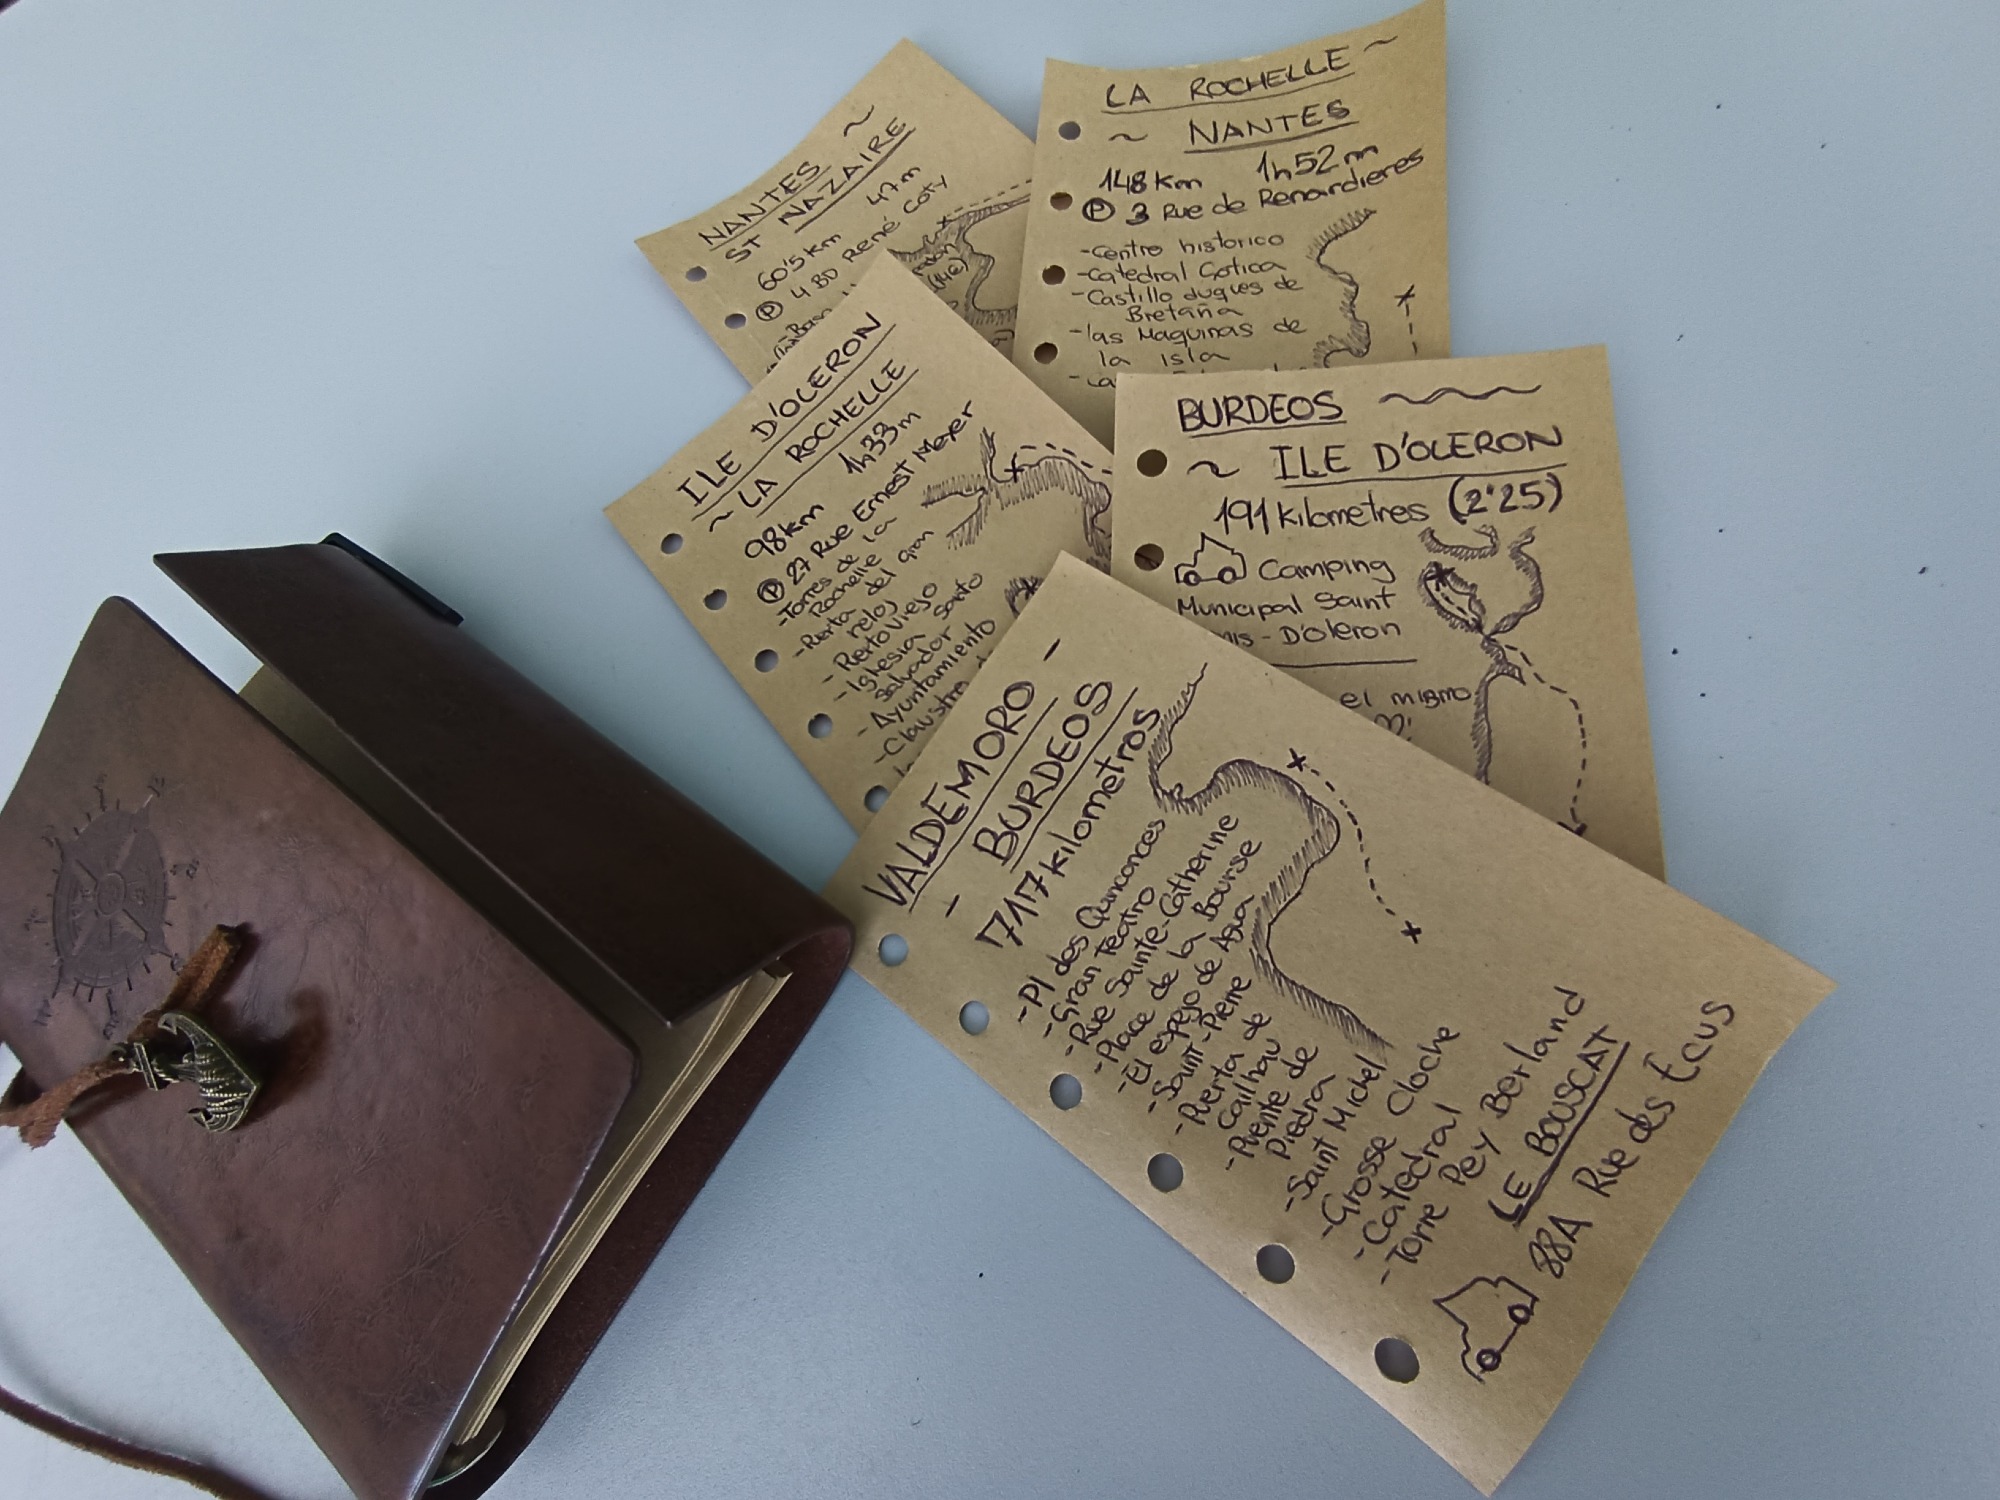 NANTES ~
ST NAZAIRE
60'5 km 47m
Ⓟ 4 BD René Coty
LA ROCHELLE ~
~ NANTES
148 Km 1h52m
Ⓟ 3 Rue de Renardieres
-Centro historico
-Catedral Gotica
-Castillo duques de
Bretaña
-las Maquinas de
la isla
ILE D'OLERON
~ LA ROCHELLE
98km 1h33m
Ⓟ 27 Rue Ernest Meyer
-Torres de la
Rochelle
-Puerta del gran
reloj
-Puerto Viejo
-Iglesia Santo
Salvador
-Ayuntamiento
-Claustro
BURDEOS
~ ILE D'OLERON
191 kilometres (2'25)
Camping
Municipal Saint
- D'oleron
el mismo
VALDEMORO -
- BURDEOS
717 kilometros
-Pl des Quinconces
-Gran Teatro
-Rue Sainte-Catherine
-Place de la Bourse
-El espejo de Agua
-Saint-Pierre
-Puerta de
Cailhau
-Puente de
Piedra
-Saint Michel
-Grosse Cloche
-Catedral
-Torre Pey Berland
LE BOUSCAT
88A Rue des Écus